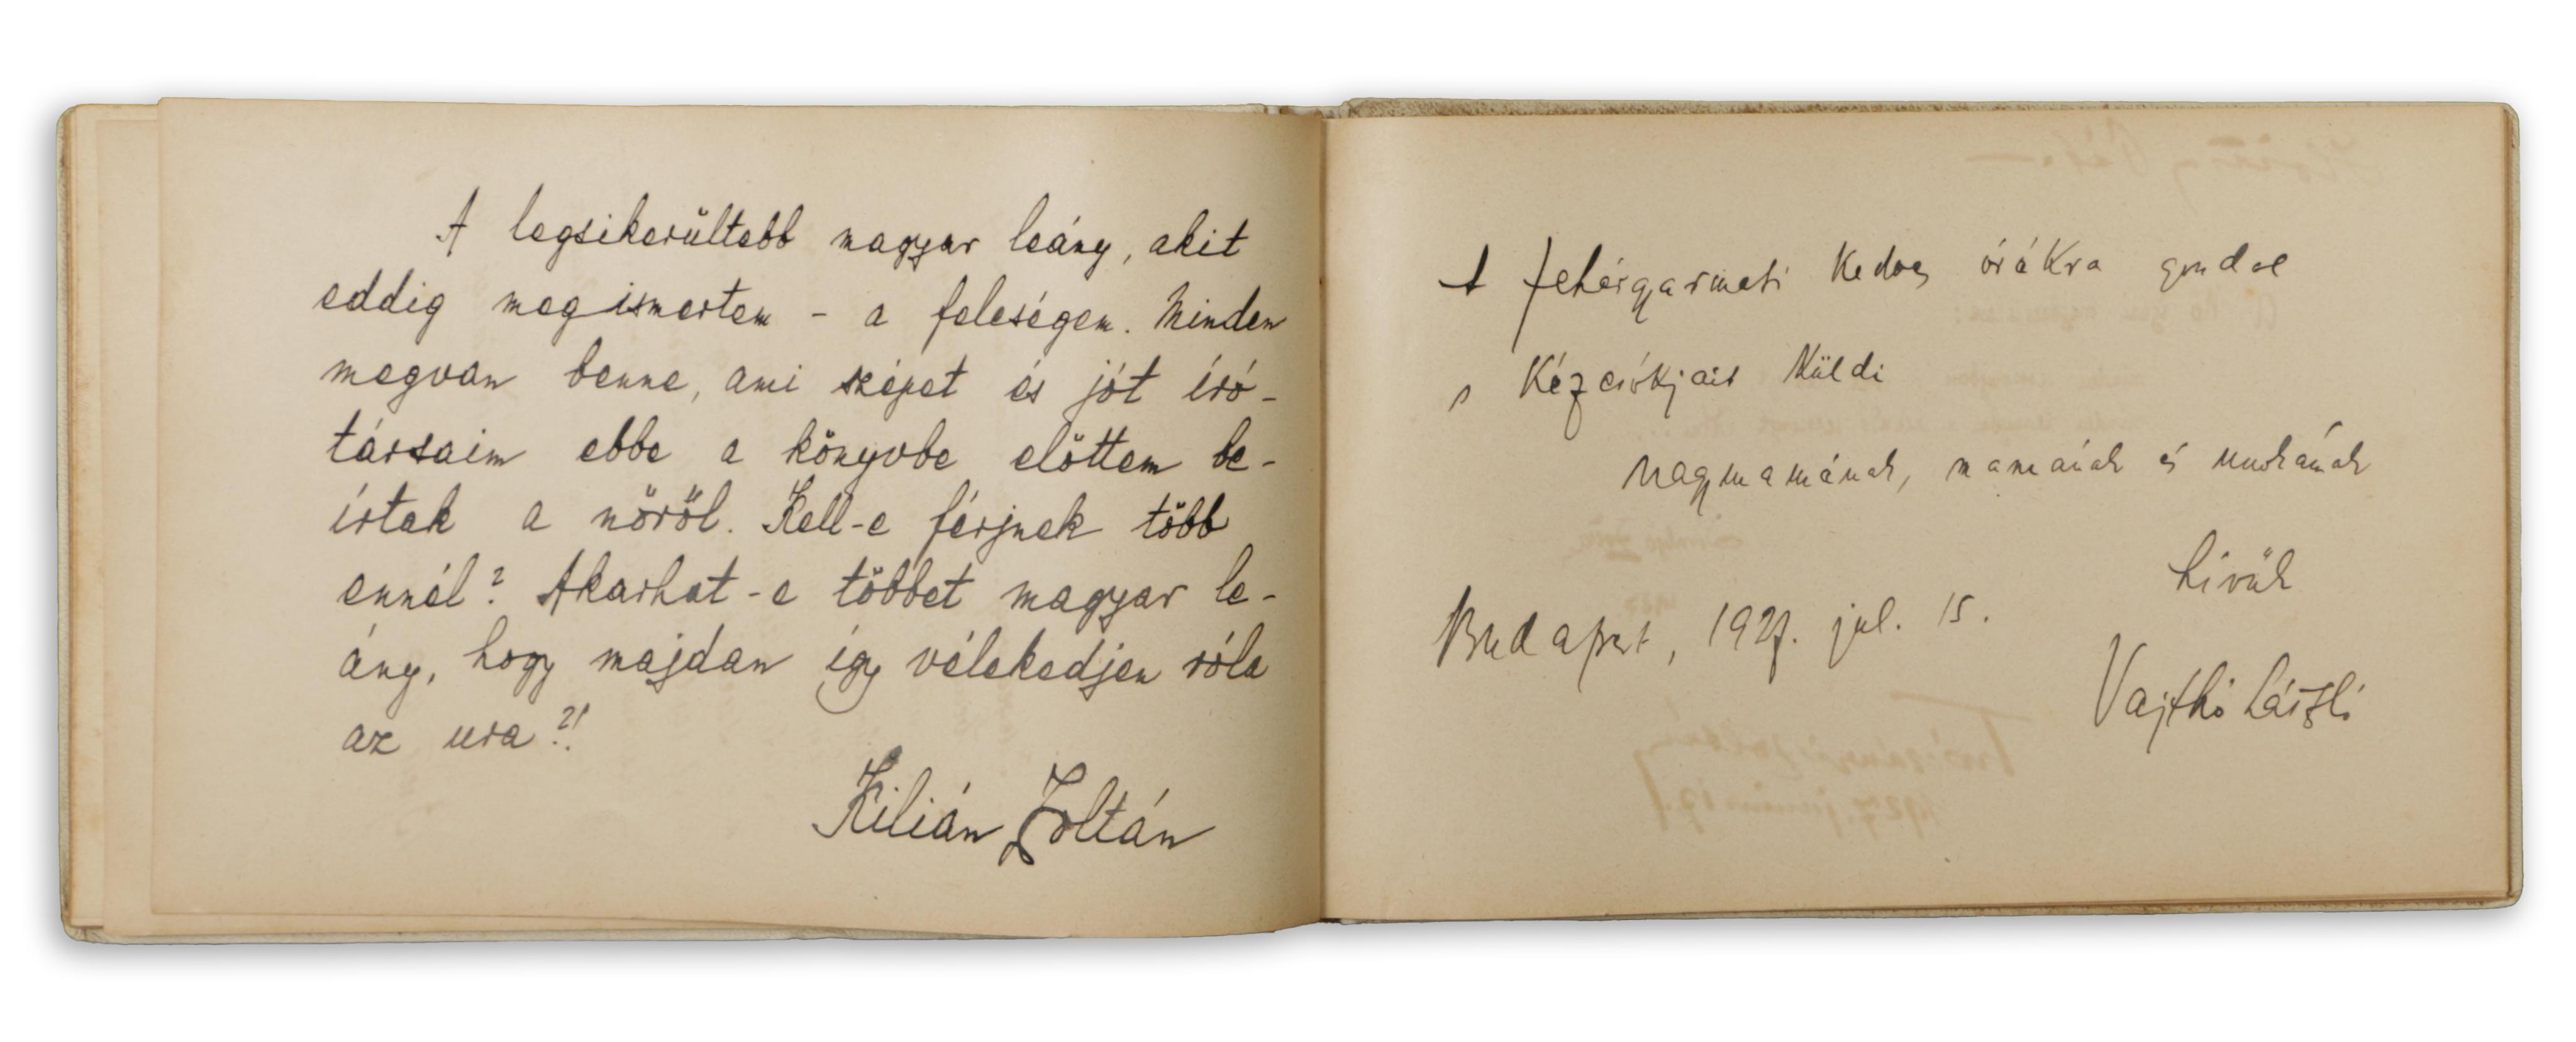 A legsikerültebb magyar leány, akit
eddig megismertem - a feleségem. Minden
megvan benne, ami szépet és jót író-
társaim ebbe a könyvbe előttem be-
írtak a nőről. Kell-e férjnek több
ennél? Akarhat-e többet magyar le-
ány, hogy majdan így vélekedjen róla
az ura?!
Kilián Zoltán
A fehérgarmati kedves órákra gondol
s kézcsókjait küldi
nagymamának, mamának és
hívük
Budapest, 1927. jul. 15.
Vajthó László